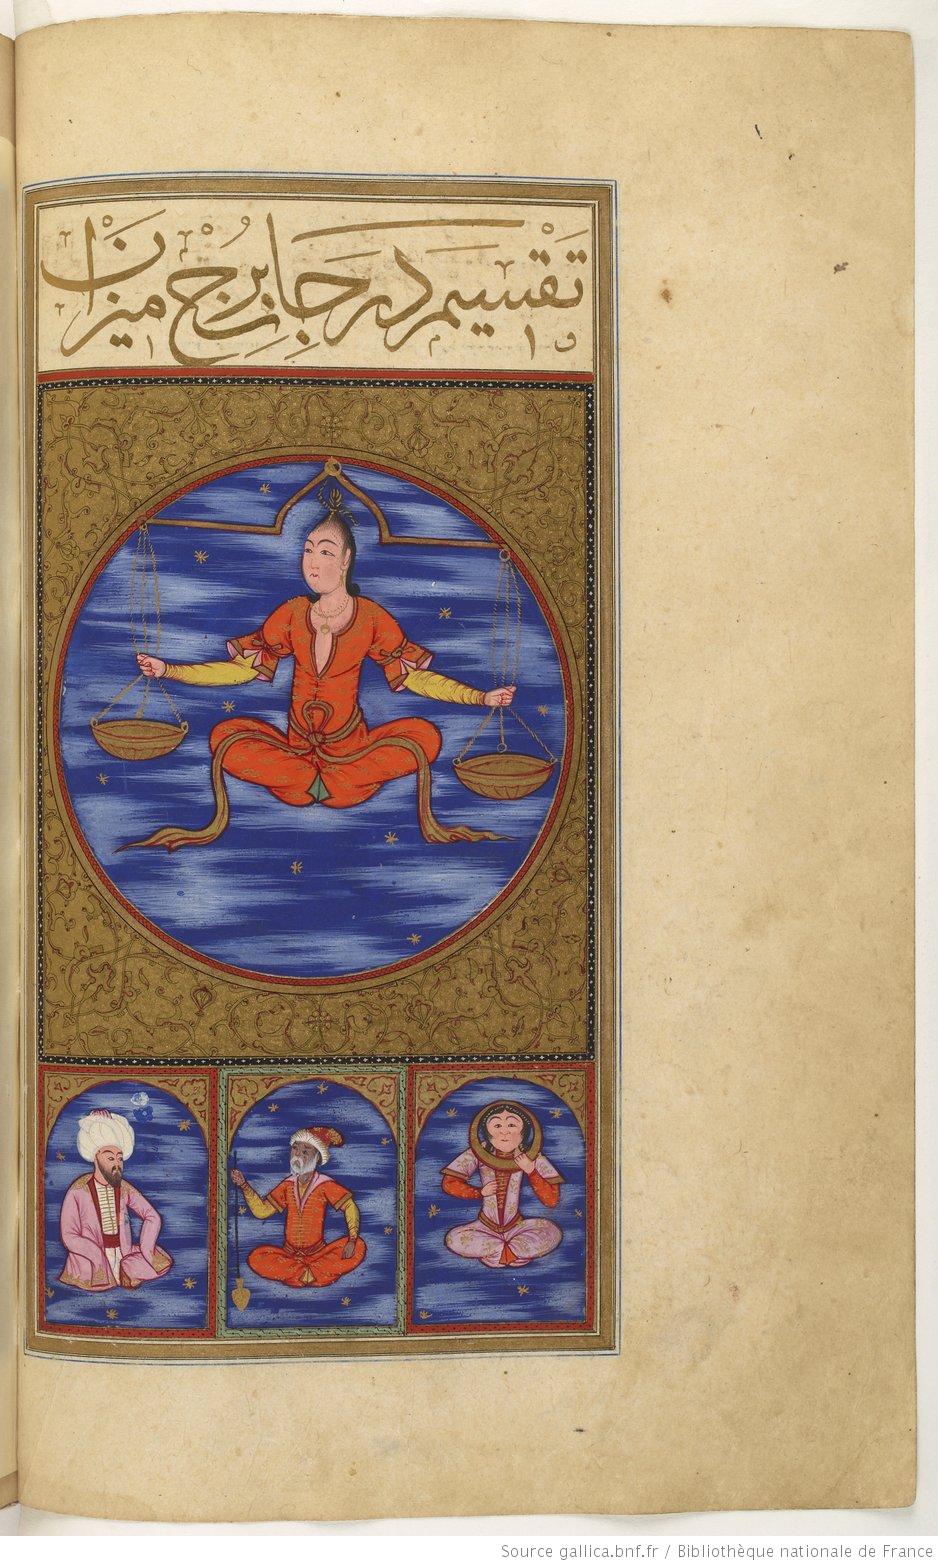 تقسيم درجات برج ميزان
Source gallica.bnf.fr / Bibliothèque nationale de France